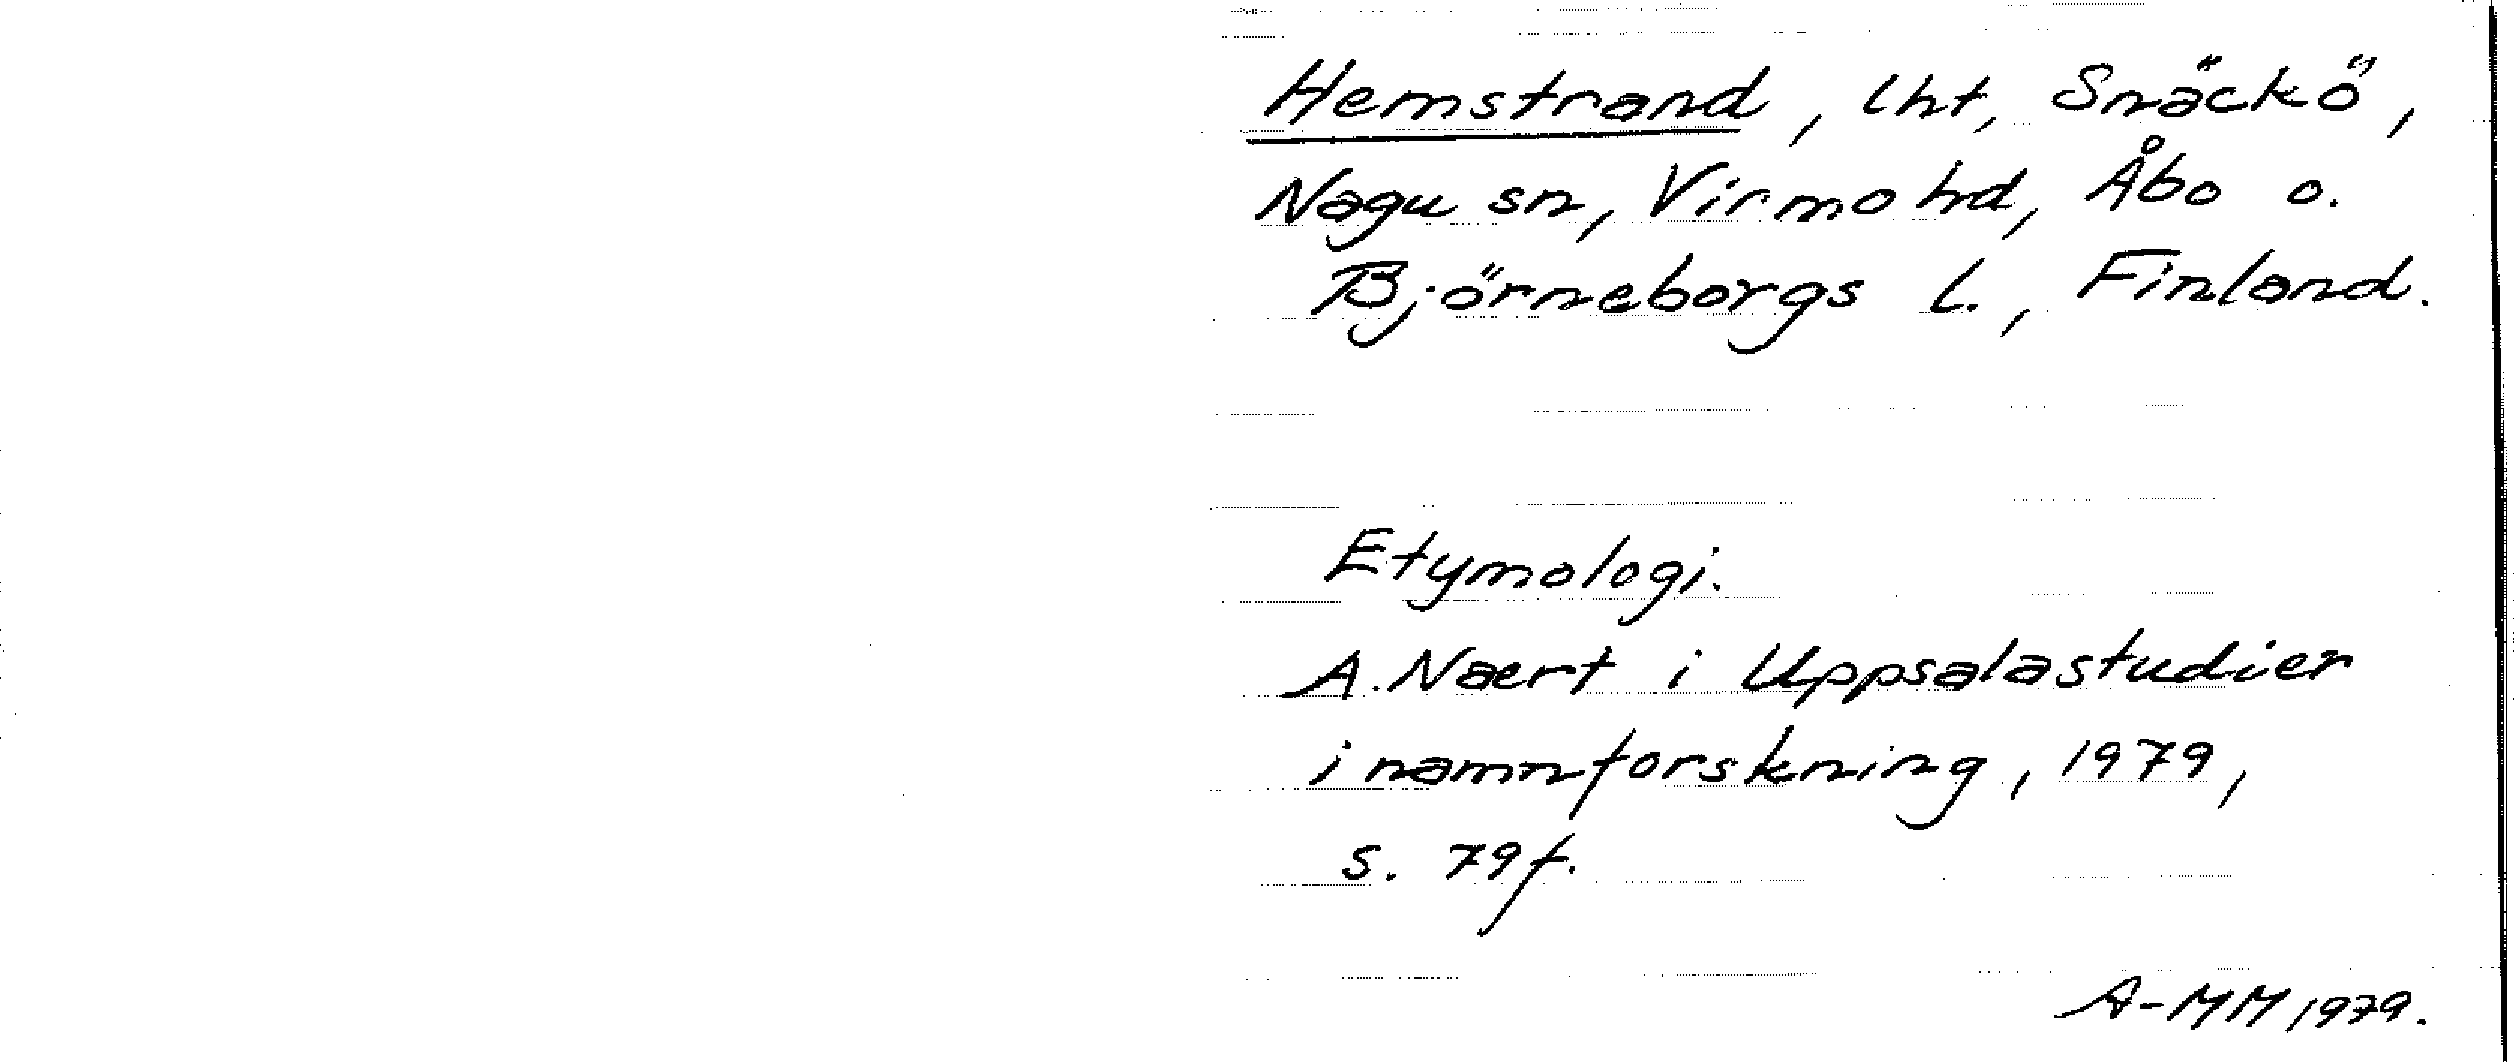 Hemstrand, lht, Snäckö,
Nagu sn, Virmo hd, Åbo o.
Björneborgs l., Finland.
Etymologi.
A. Naert i Uppsalastudier
i namnforskning, 1979,
s. 79f.
A-MM 1979.